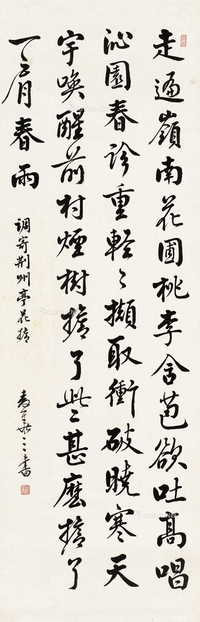 走遍嶺南花圃桃李含苞欲吐高唱
沁園春詠重輕輕擷取衝破曉寒天
宇喚醒前村煙樹擔了些些甚麼擔了
一二月春雨
调寄荆州亭花擔